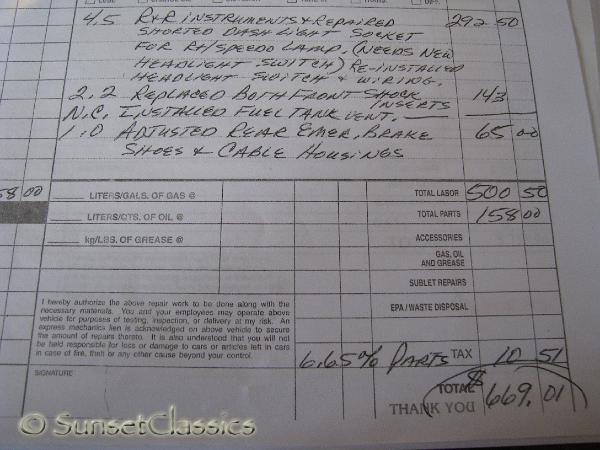 4.5 R+R INSTRUMENTS & REPAIRED 292 50
SHORTED DASH LIGHT SOCKET
FOR RH/SPEEDO LAMP. (NEEDS NEW
HEADLIGHT SWITCH) RE-INSTALLED
HEADLIGHT SWITCH & WIRING.
2.2 REPLACED BOTH FRONT SHOCK INSERTS 143
N.C. INSTALLED FUEL TANK VENT.
1.0 ADJUSTED REAR EMER. BRAKE 65 00
SHOES & CABLE HOUSINGS
58 00
LITERS/GALS. OF GAS @ TOTAL LABOR 500 50
LITERS/QTS. OF OIL @ TOTAL PARTS 158 00
kg/LBS. OF GREASE @ ACCESSORIES
GAS, OIL
AND GREASE
SUBLET REPAIRS
EPA / WASTE DISPOSAL
I hereby authorize the above repair work to be done along with the
necessary materials. You and your employees may operate above
vehicle for purposes of testing, inspection, or delivery at my risk. An
express mechanics lien is acknowledged on above vehicle to secure
the amount of repairs thereto. It is also understood that you will not
be held responsible for loss or damage to cars or articles left in cars
in case of fire, theft or any other cause beyond your control.
6.65% PARTS TAX 10 51
SIGNATURE
TOTAL $ 669.01
THANK YOU
© SunsetClassics